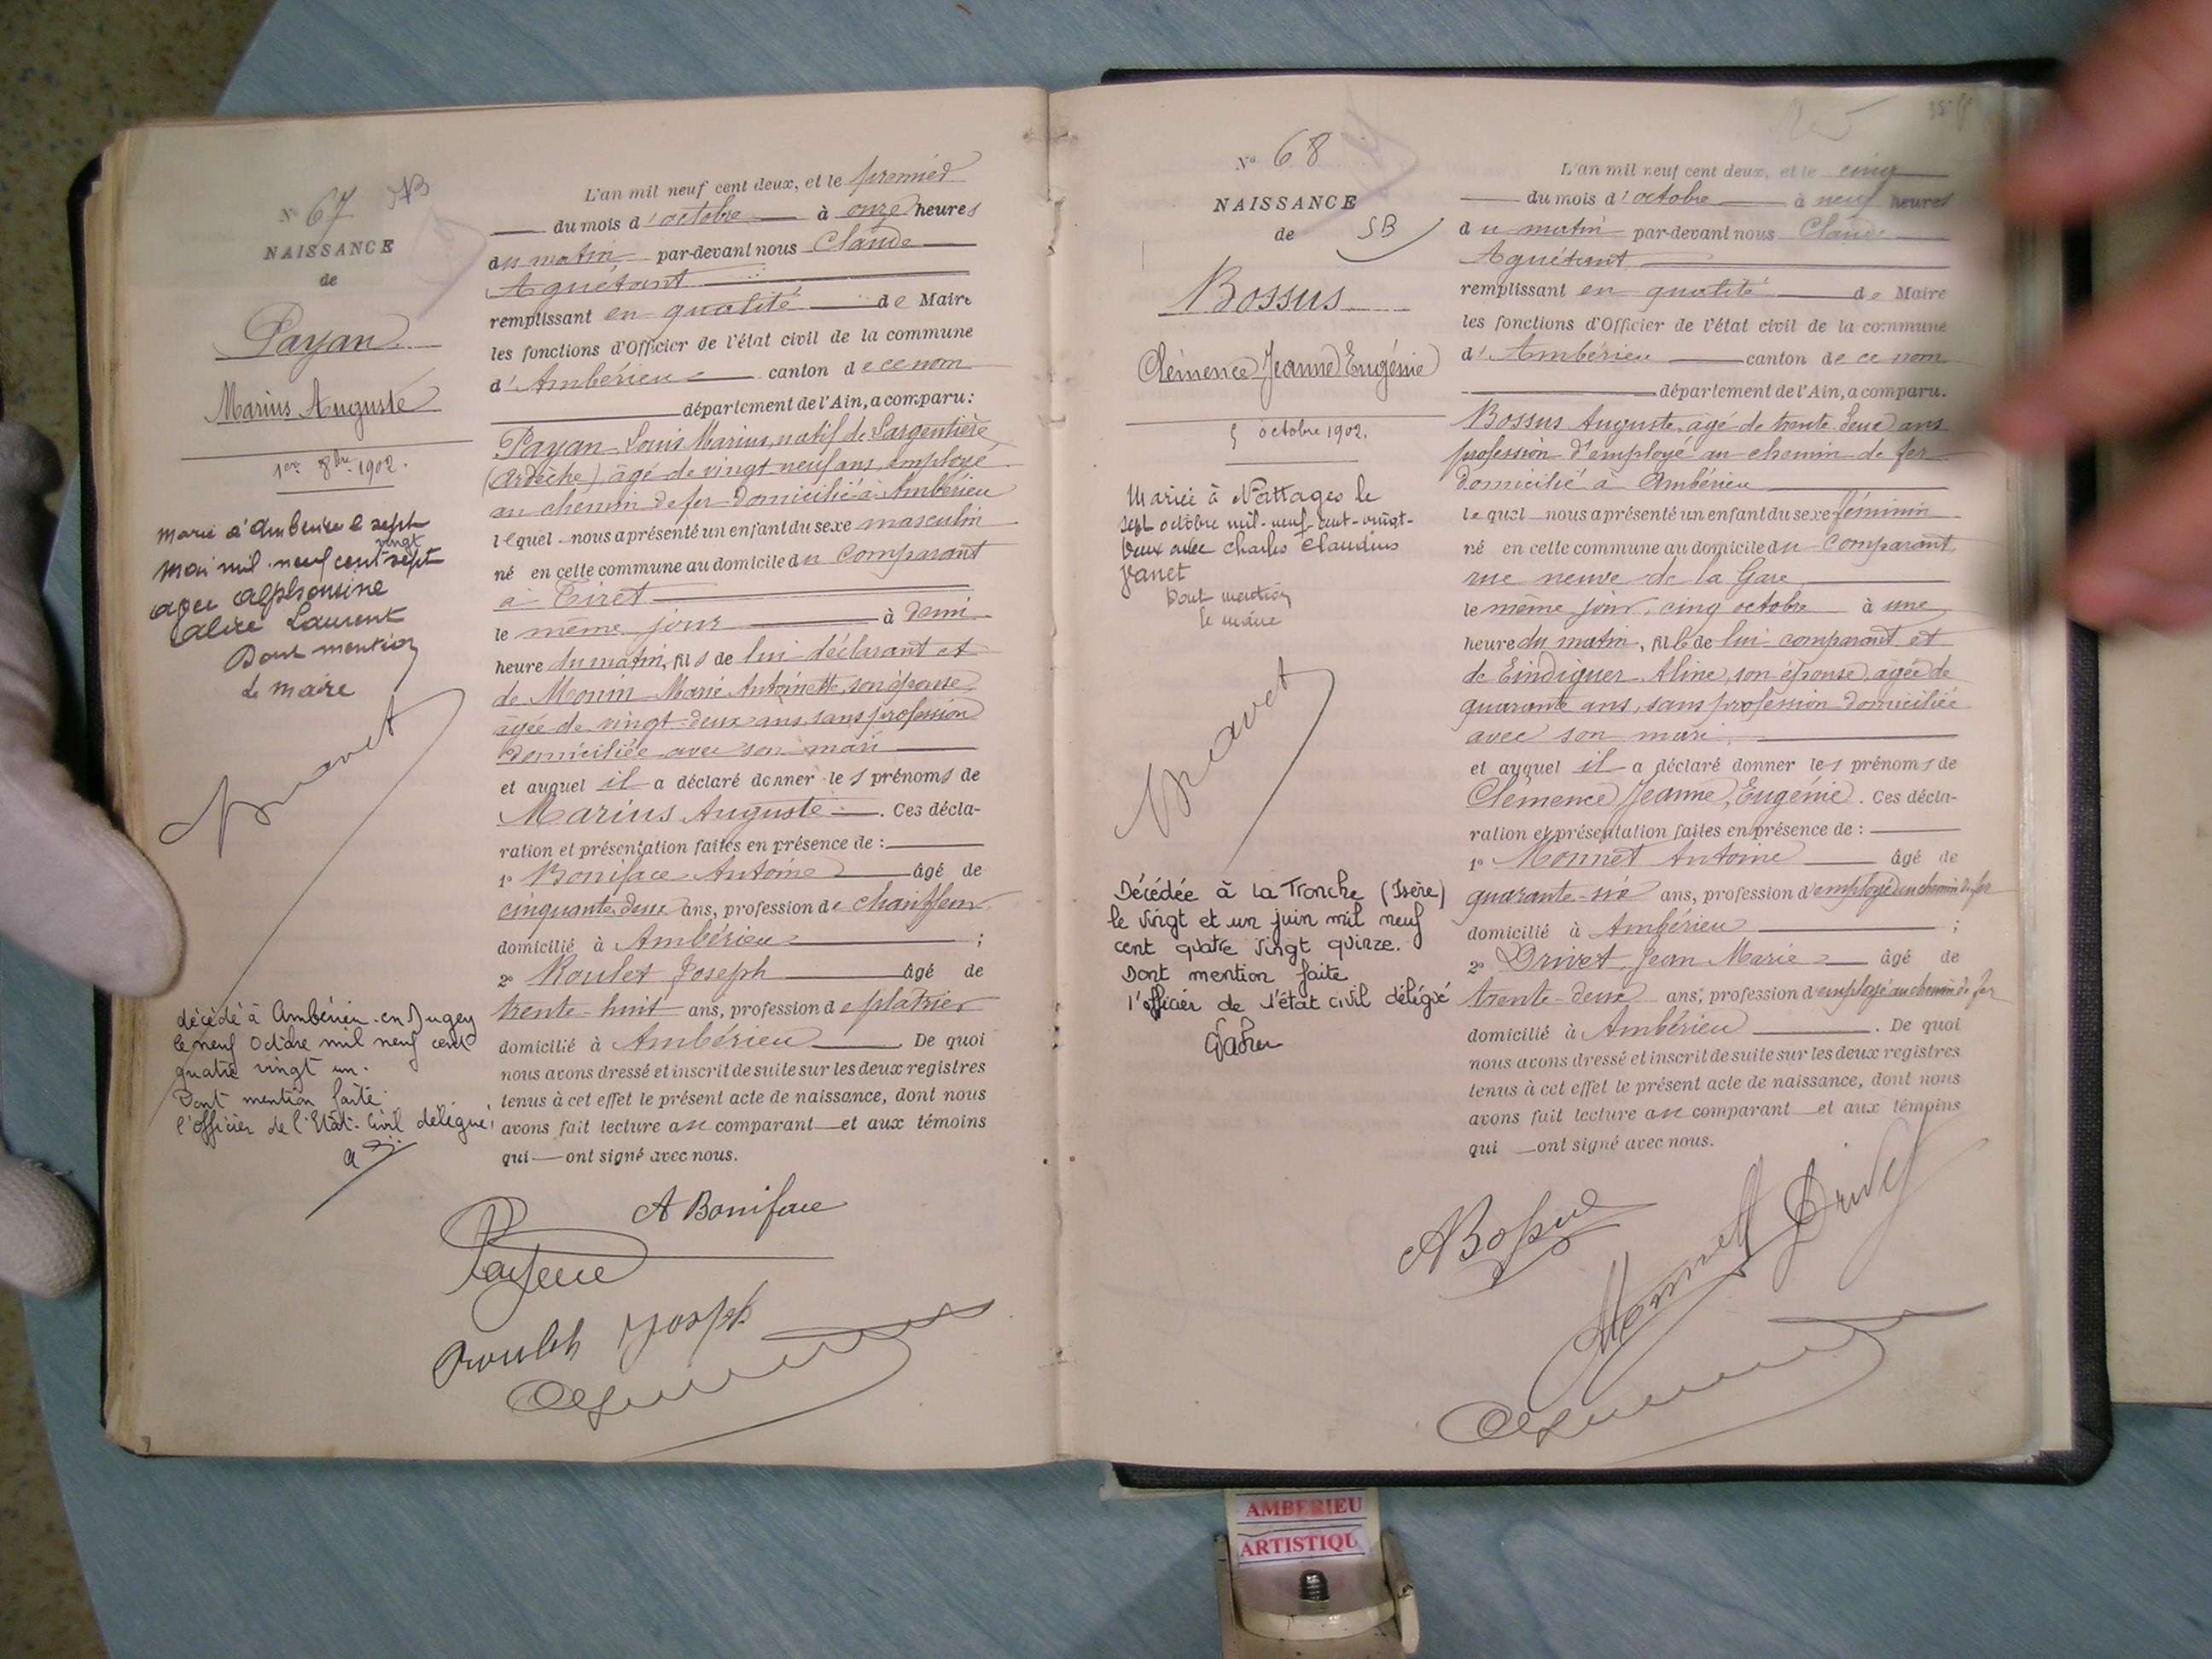 N° 67
NAISSANCE
de
Payan
Marius Auguste
1er 8bre 1902.
Marié à Ambérieu le sept
mai mil neuf cent vingt sept
avec Alphonsine
Alice Laurent
Dont mention
Le maire
décédé à Ambérieu-en-Bugey
le neuf Octobre mil neuf cent
quatre vingt un.
Dont mention faite.
l'officier de l'Etat-Civil délégué,
L'an mil neuf cent deux, et le premier
du mois d'octobre à onze heures
du matin par-devant nous Claude
Aguétant
remplissant en qualité de Maire
les fonctions d'Officier de l'état civil de la commune
d'Ambérieu canton de ce nom
département de l'Ain, a comparu:
Payan Louis Marius, natif de Largentière
(Ardèche) âgé de vingt neuf ans, employé
au chemin de fer domicilié à Ambérieu
lequel nous a présenté un enfant du sexe masculin
né en cette commune au domicile du comparant
à Tiret
le même jour à demi
heure du matin, fils de lui déclarant et
de Monin Marie Antoinette, son épouse,
âgée de vingt-deux ans, sans profession
domiciliée avec son mari
et auquel il a déclaré donner les prénoms de
Marius Auguste. Ces décla-
ration et présentation faites en présence de :
1° Boniface Antoine âgé de
cinquante deux ans, profession de chauffeur
domicilié à Ambérieu ;
2° Roulet Joseph âgé de
trente-huit ans, profession de plâtrier
domicilié à Ambérieu. De quoi
nous avons dressé et inscrit de suite sur les deux registres
tenus à cet effet le présent acte de naissance, dont nous
avons fait lecture au comparant et aux témoins
qui ont signé avec nous.
A Boniface
Payan
Roulet Joseph
N° 68
NAISSANCE
de SB
Bossus
Clémence Jeanne Eugénie
5 octobre 1902.
Mariée à Nattages le
sept octobre mil-neuf-cent-vingt-
deux avec Charles Claudius
Janet
Dont mention
le maire
Décédée à La Tronche (Isère)
le vingt et un juin mil neuf
cent quatre vingt quinze.
Dont mention faite
l'officier de l'état civil délégué
L'an mil neuf cent deux, et le cinq
du mois d'octobre à neuf heures
du matin par-devant nous Claude
Aguétant
remplissant en qualité de Maire
les fonctions d'Officier de l'état civil de la commune
d'Ambérieu canton de ce nom
département de l'Ain, a comparu.
Bossus Auguste, âgé de trente deux ans
profession d'employé au chemin de fer
domicilié à Ambérieu
lequel nous a présenté un enfant du sexe féminin
né en cette commune au domicile du comparant
rue neuve de la Gare
le même jour, cinq octobre à une
heure du matin, fille de lui comparant et
de Eindiguer Aline, son épouse, âgée de
quarante ans, sans profession domiciliée
avec son mari,
et auquel il a déclaré donner les prénoms de
Clémence, Jeanne, Eugénie. Ces décla-
ration et présentation faites en présence de :
1° Monnet Antoine âgé de
quarante-six ans, profession d'employé au chemin de fer
domicilié à Ambérieu ;
2° Drivet Jean Marie âgé de
trente-deux ans, profession d'employé au chemin de fer
domicilié à Ambérieu. De quoi
nous avons dressé et inscrit de suite sur les deux registres
tenus à cet effet le présent acte de naissance, dont nous
avons fait lecture au comparant et aux témoins
qui ont signé avec nous.
ABossus
Monnet Drivet
AMBERIEU
ARTISTIQU